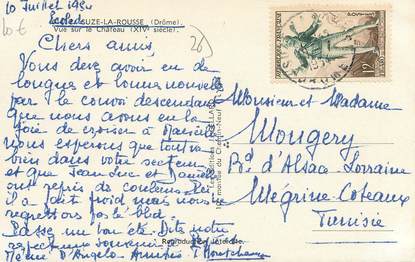 10 Juillet 1954
10 €
SUZE-LA-ROUSSE (Drôme).
Vue sur le Château (XIVe siècle).
26
Chers amis,
Vous devez avoir eu de
longues et bonnes nouvelles
par le convoi descendant
que nous avons eu la
joie de croiser à Marseille
nous espérons que tout va
bien dans votre secteur
et que Jean Luc et Danielle
ont repris de couleurs. Ici
il a fait froid mais nous
regrettons pas le bled.
Passez un bon été. Dites notre
souvenir
12
Monsieur et Madame
Mougery
Bd d'Alsace Lorraine
Mégrine-Coteaux
Tunisie
Reproduction interdite.